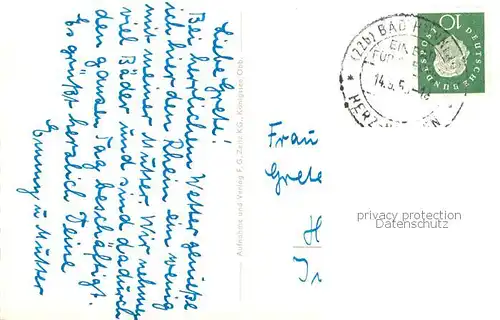 Liebe Grete!
Bei herrlichem Wetter genieße
ich hier den Rhein ein wenig
mit meiner Mutter. Wir nehmen
viel Bäder und sind dadurch
den ganzen Tag beschäftigt.
Es grüßt herzlich Deine
Emmy u. Mutter
Aufnahme und Verlag F. G. Zeitz KG., Königsee Obb.
Frau
Grete
H
(22b) BAD
14.5.5
HERZ
DEUTSCHE BUNDESPOST
10
privacy protection
Datenschutz